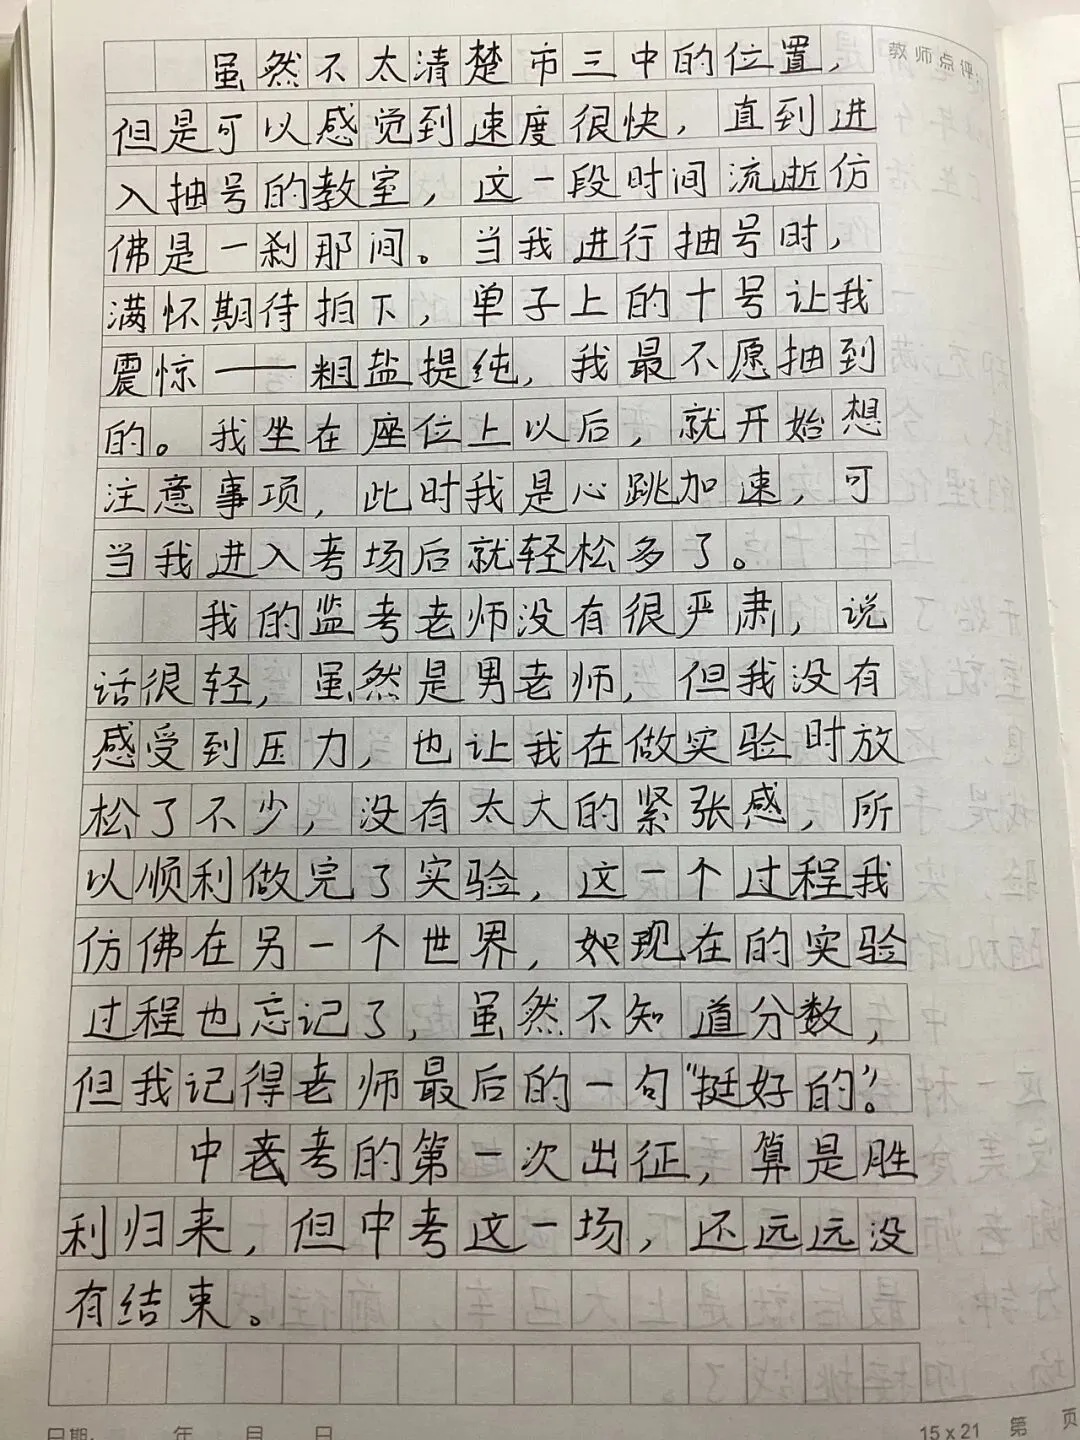 教师点评:
虽然不太清楚市三中的位置，
但是可以感觉到速度很快，直到进
入抽号的教室，这一段时间流逝仿
佛是一刹那间。当我进行抽号时，
满怀期待拍下，单子上的十号让我
震惊——粗盐提纯，我最不愿抽到
的。我坐在座位上以后，就开始想
注意事项，此时我是心跳加速，可
当我进入考场后就轻松多了。
我的监考老师没有很严肃，说
话很轻，虽然是男老师，但我没有
感受到压力，也让我在做实验时放
松了不少，没有太大的紧张感，所
以顺利做完了实验，这一个过程我
仿佛在另一个世界，现在的实验
过程也忘记了，虽然不知道分数，
但我记得老师最后的一句“挺好的”。
中考的第一次出征，算是胜
利归来，但中考这一场，还远远没
有结束。
日期: 年 月 日 15×21 第 页